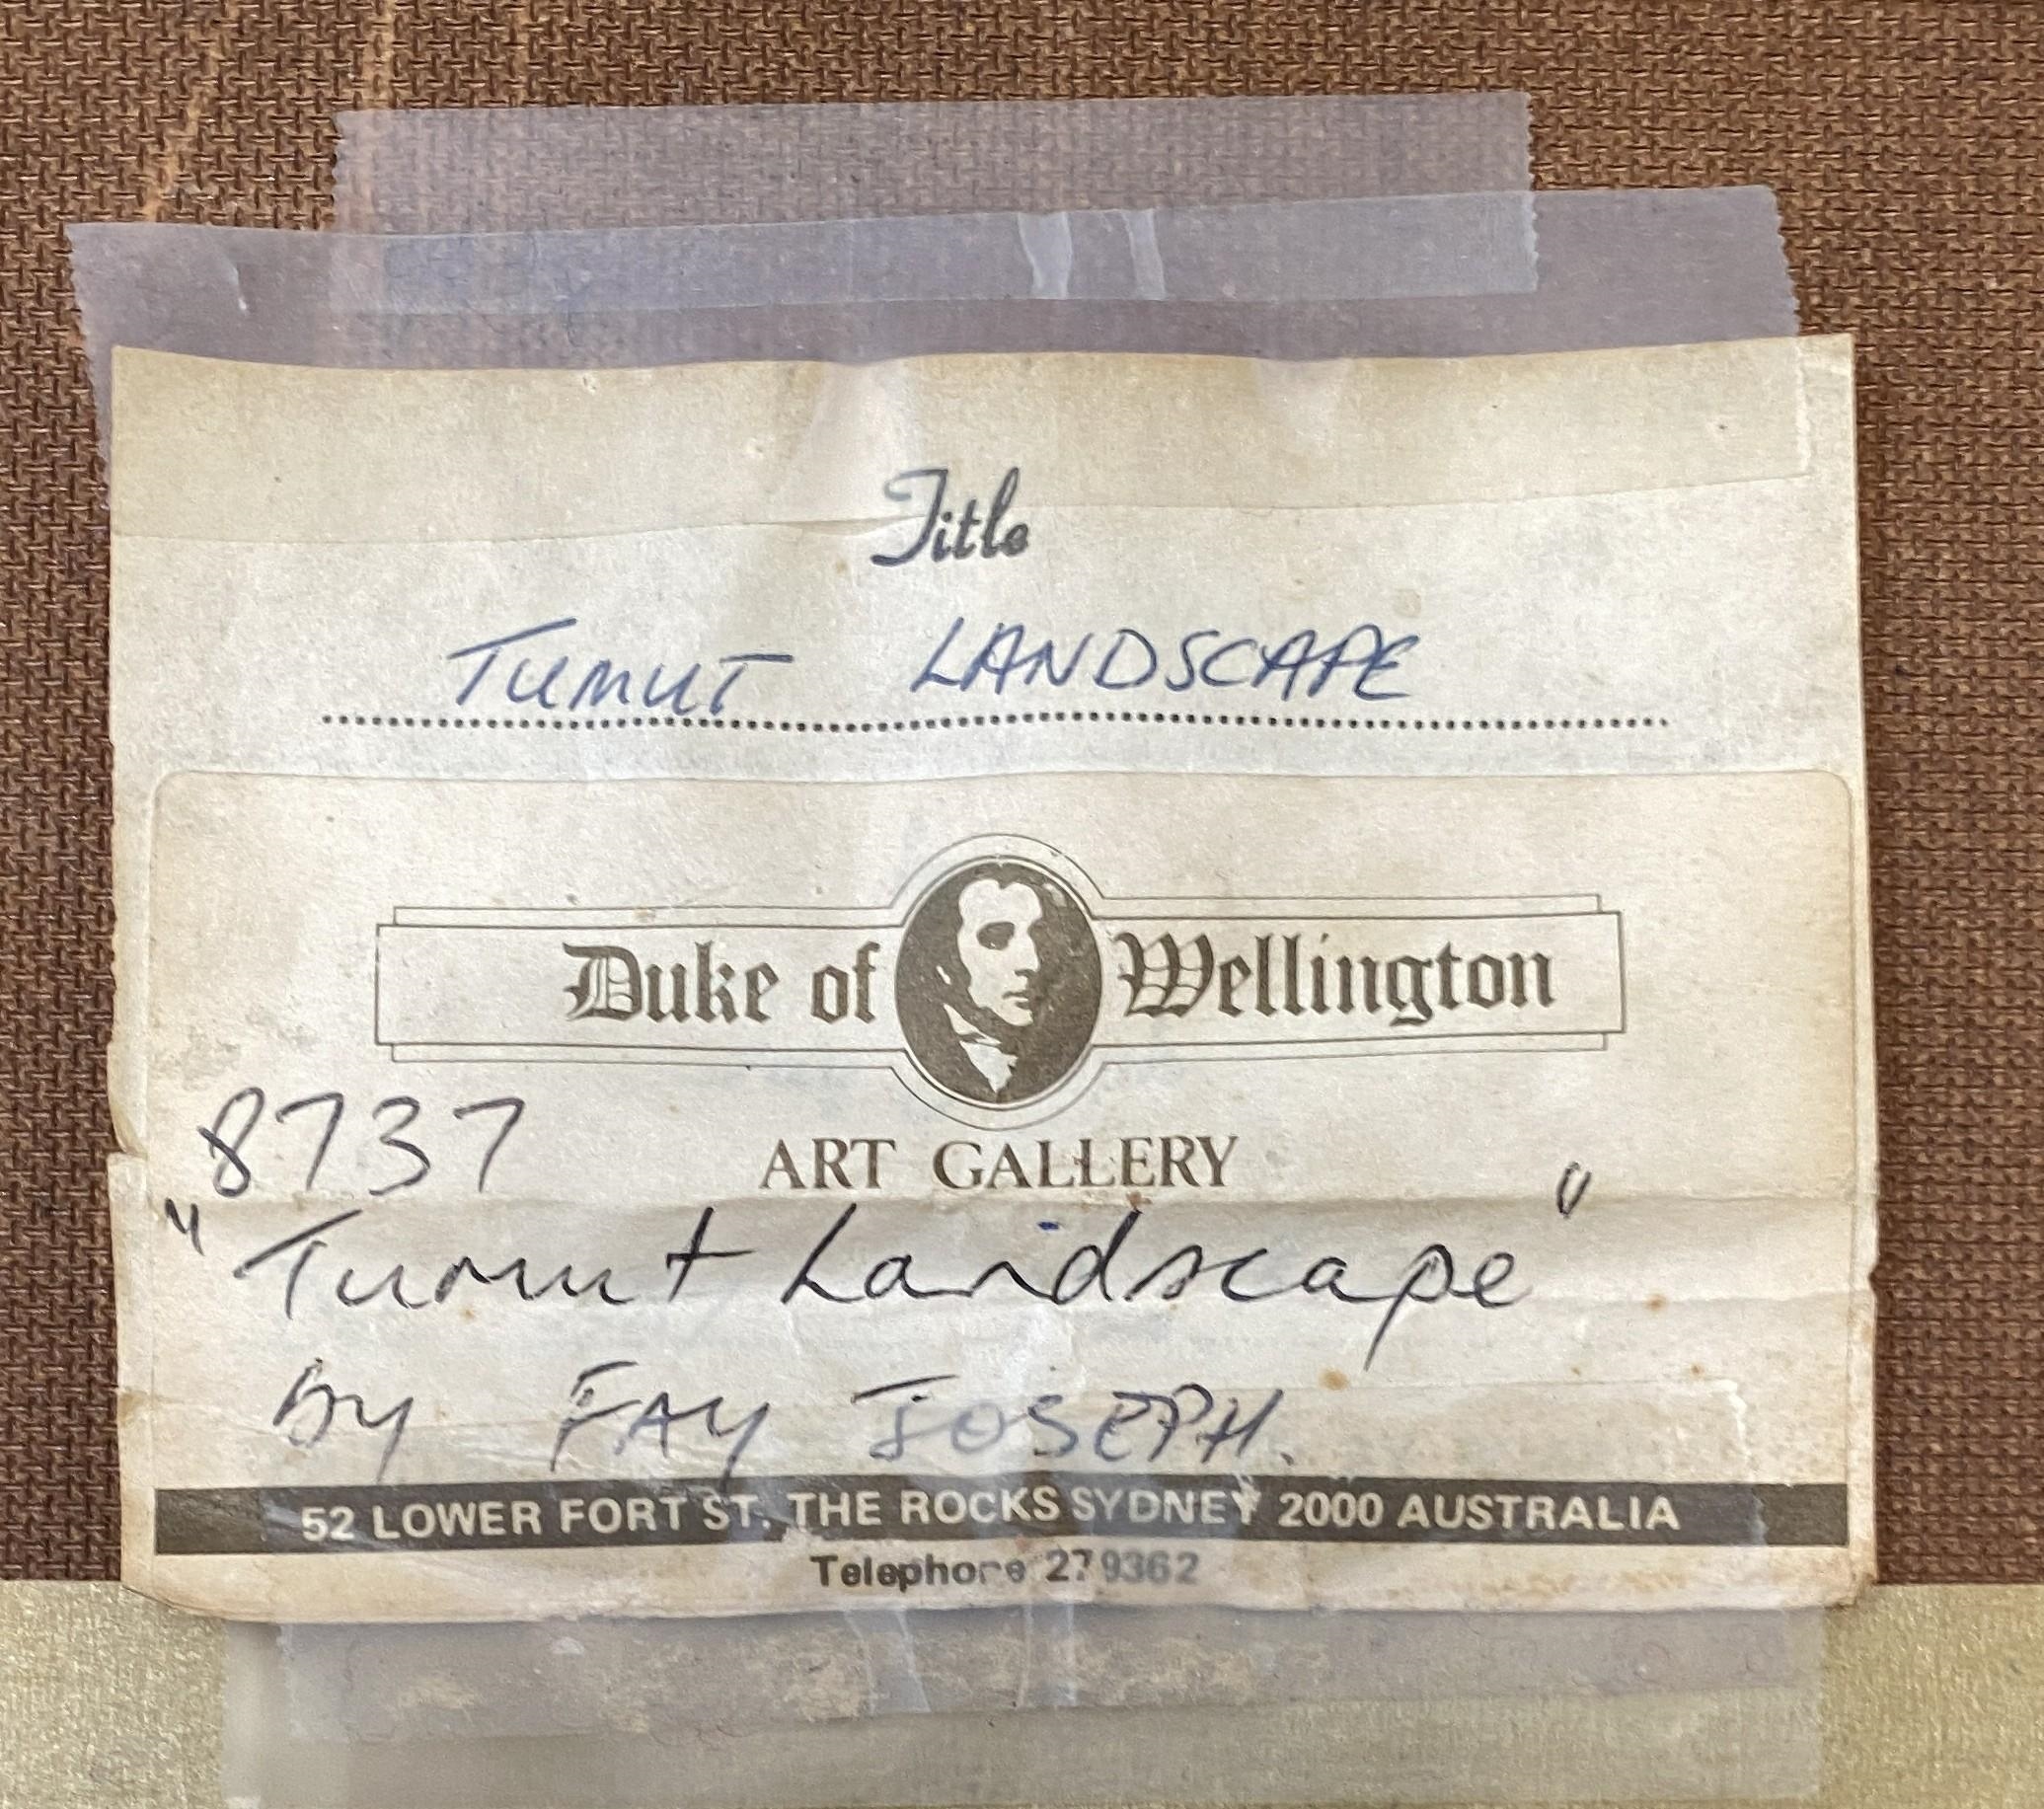 Title
TUMUT LANDSCAPE
Duke of Wellington
ART GALLERY
8737
"Tumut Landscape"
By FAY JOSEPH.
52 LOWER FORT ST. THE ROCKS SYDNEY 2000 AUSTRALIA
Telephone 279362